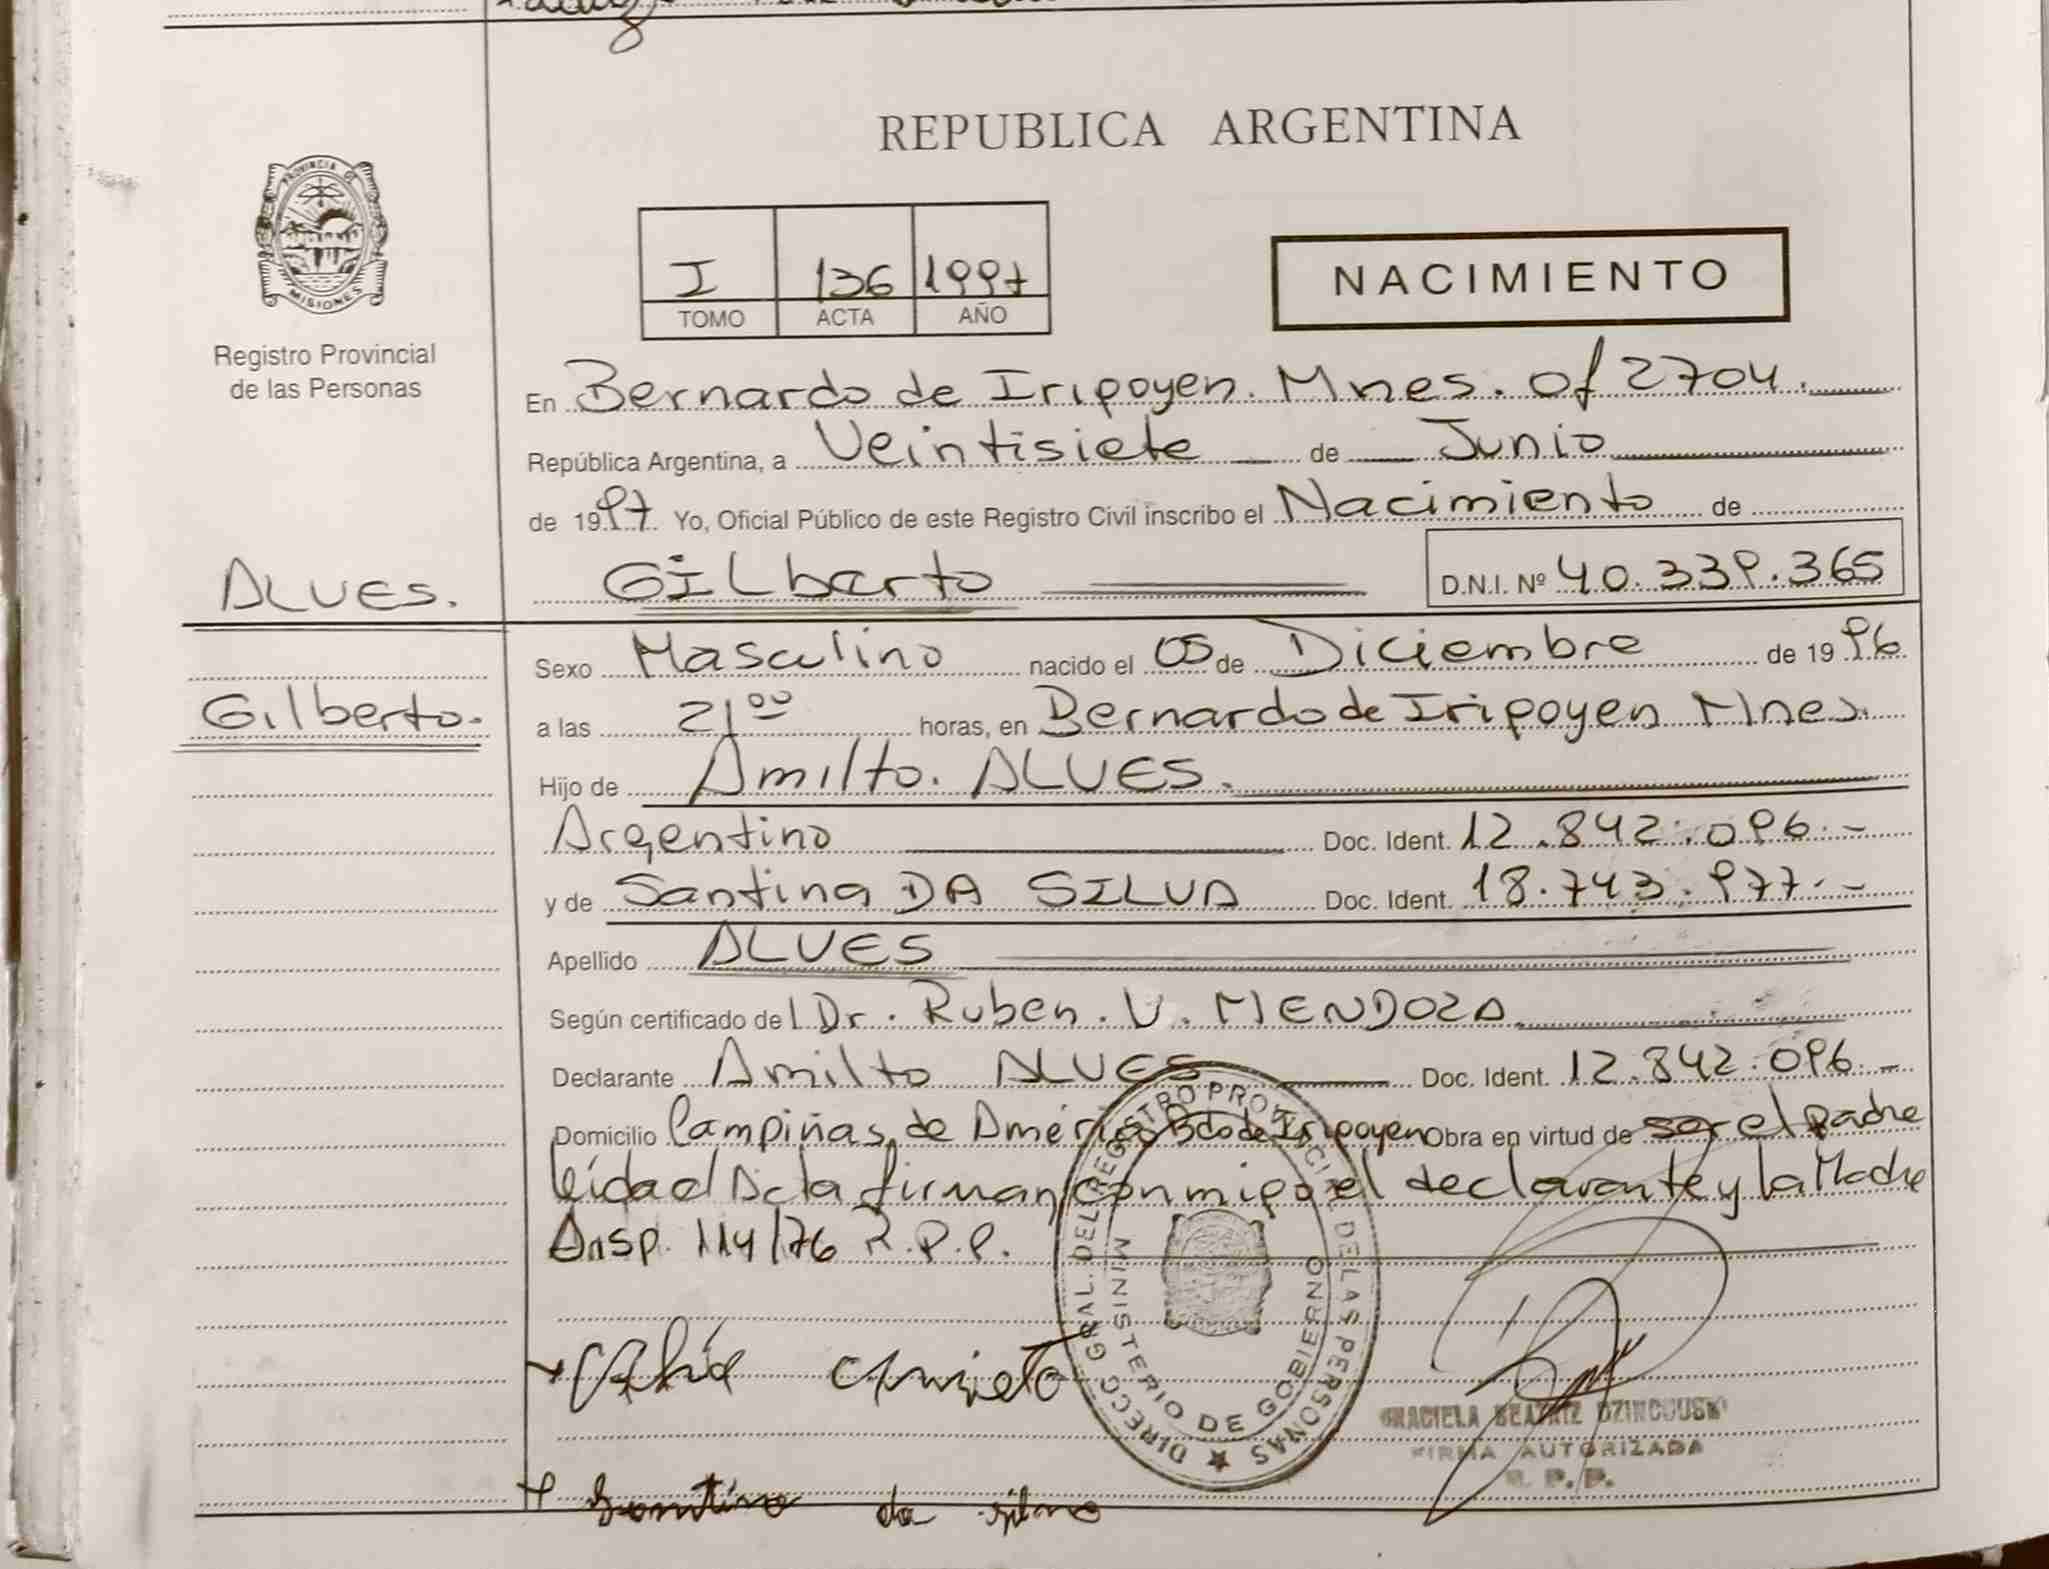 REPUBLICA ARGENTINA
PROVINCIA DE
MISIONES
Registro Provincial
de las Personas
I 136 1997
TOMO ACTA AÑO
NACIMIENTO
En Bernardo de Iripoyen. Mnes. of 2704.
República Argentina, a Veintisiete de Junio
de 1997 Yo, Oficial Público de este Registro Civil inscribo el Nacimiento de
ALVES. Gilberto D.N.I. Nº 40.339.365
Sexo Masculino nacido el 05 de Diciembre de 1996
Gilberto. a las 21 00 horas, en Bernardo de Iripoyen Mnes.
Hijo de Amilto. ALVES.
Argentino Doc. Ident. 12.842.096.-
y de Santina DA SILVA Doc. Ident. 18.743.977.-
Apellido ALVES
Según certificado de l Dr. Ruben. V. MENDOZA
Declarante Amilto ALVES Doc. Ident. 12.842.096.-
Domicilio Campiñas de América Bdo de Iripoyen Obra en virtud de ser el padre
leída el Acta firman conmigo el declarante y la Madre
Disp. 114/76 R.P.P.
DIRECC. GRAL. DEL REGISTRO PROVINCIAL DE LAS PERSONAS
MINISTERIO DE GOBIERNO
GRACIELA BEATRIZ
FIRMA AUTORIZADA
R.P.P.
Santina da Silva